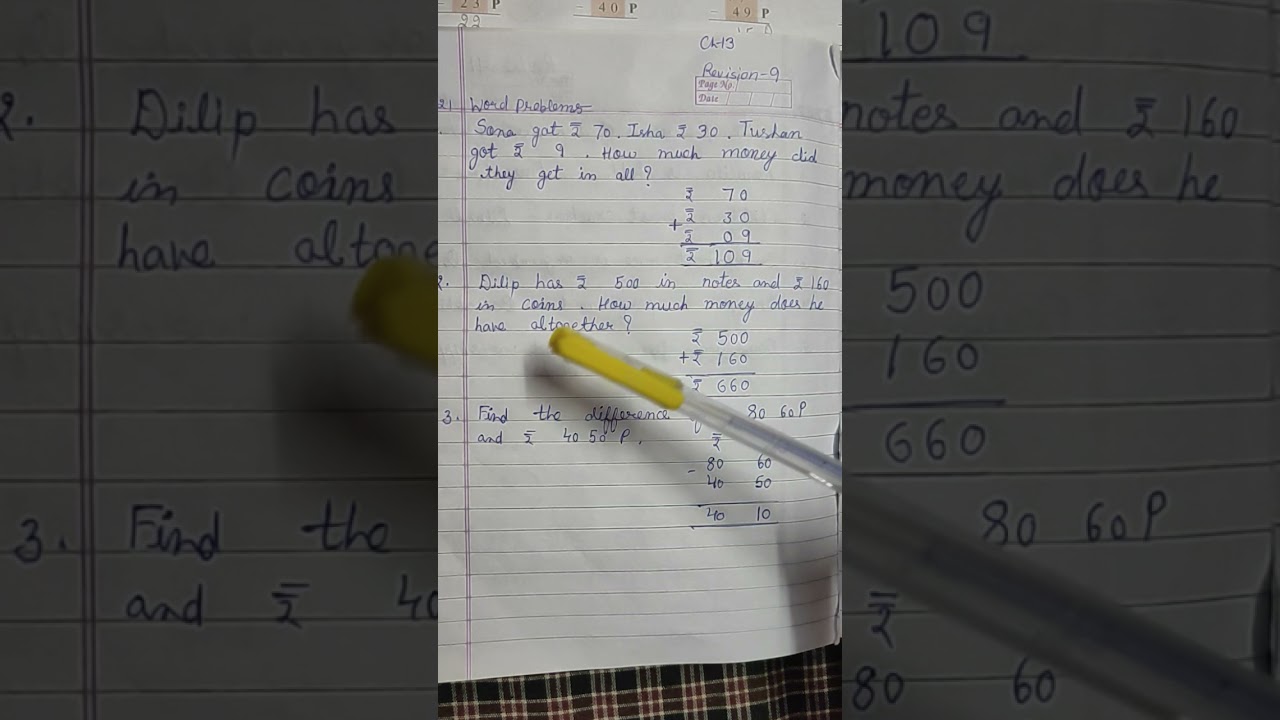 23 P
= 40 P
= 49 P
22
Ch-13
Revision-9
Page No.
Date
Word Problems
Sona got ₹ 70. Isha ₹ 30. Tushan
got ₹ 9. How much money did
they get in all?
₹ 70
+ ₹ 30
₹ 09
₹ 109
2. Dilip has ₹ 500 in notes and ₹ 160
in coins. How much money does he
have altogether?
₹ 500
+ ₹ 160
₹ 660
3. Find the difference 80 60P
and ₹ 40 50 P.
₹
80 60
- 40 50
40 10
109
2. Dilip has notes and ₹ 160
in coins money does he
have
500
160
660
3. Find the 80 60P
and ₹
₹
80 60